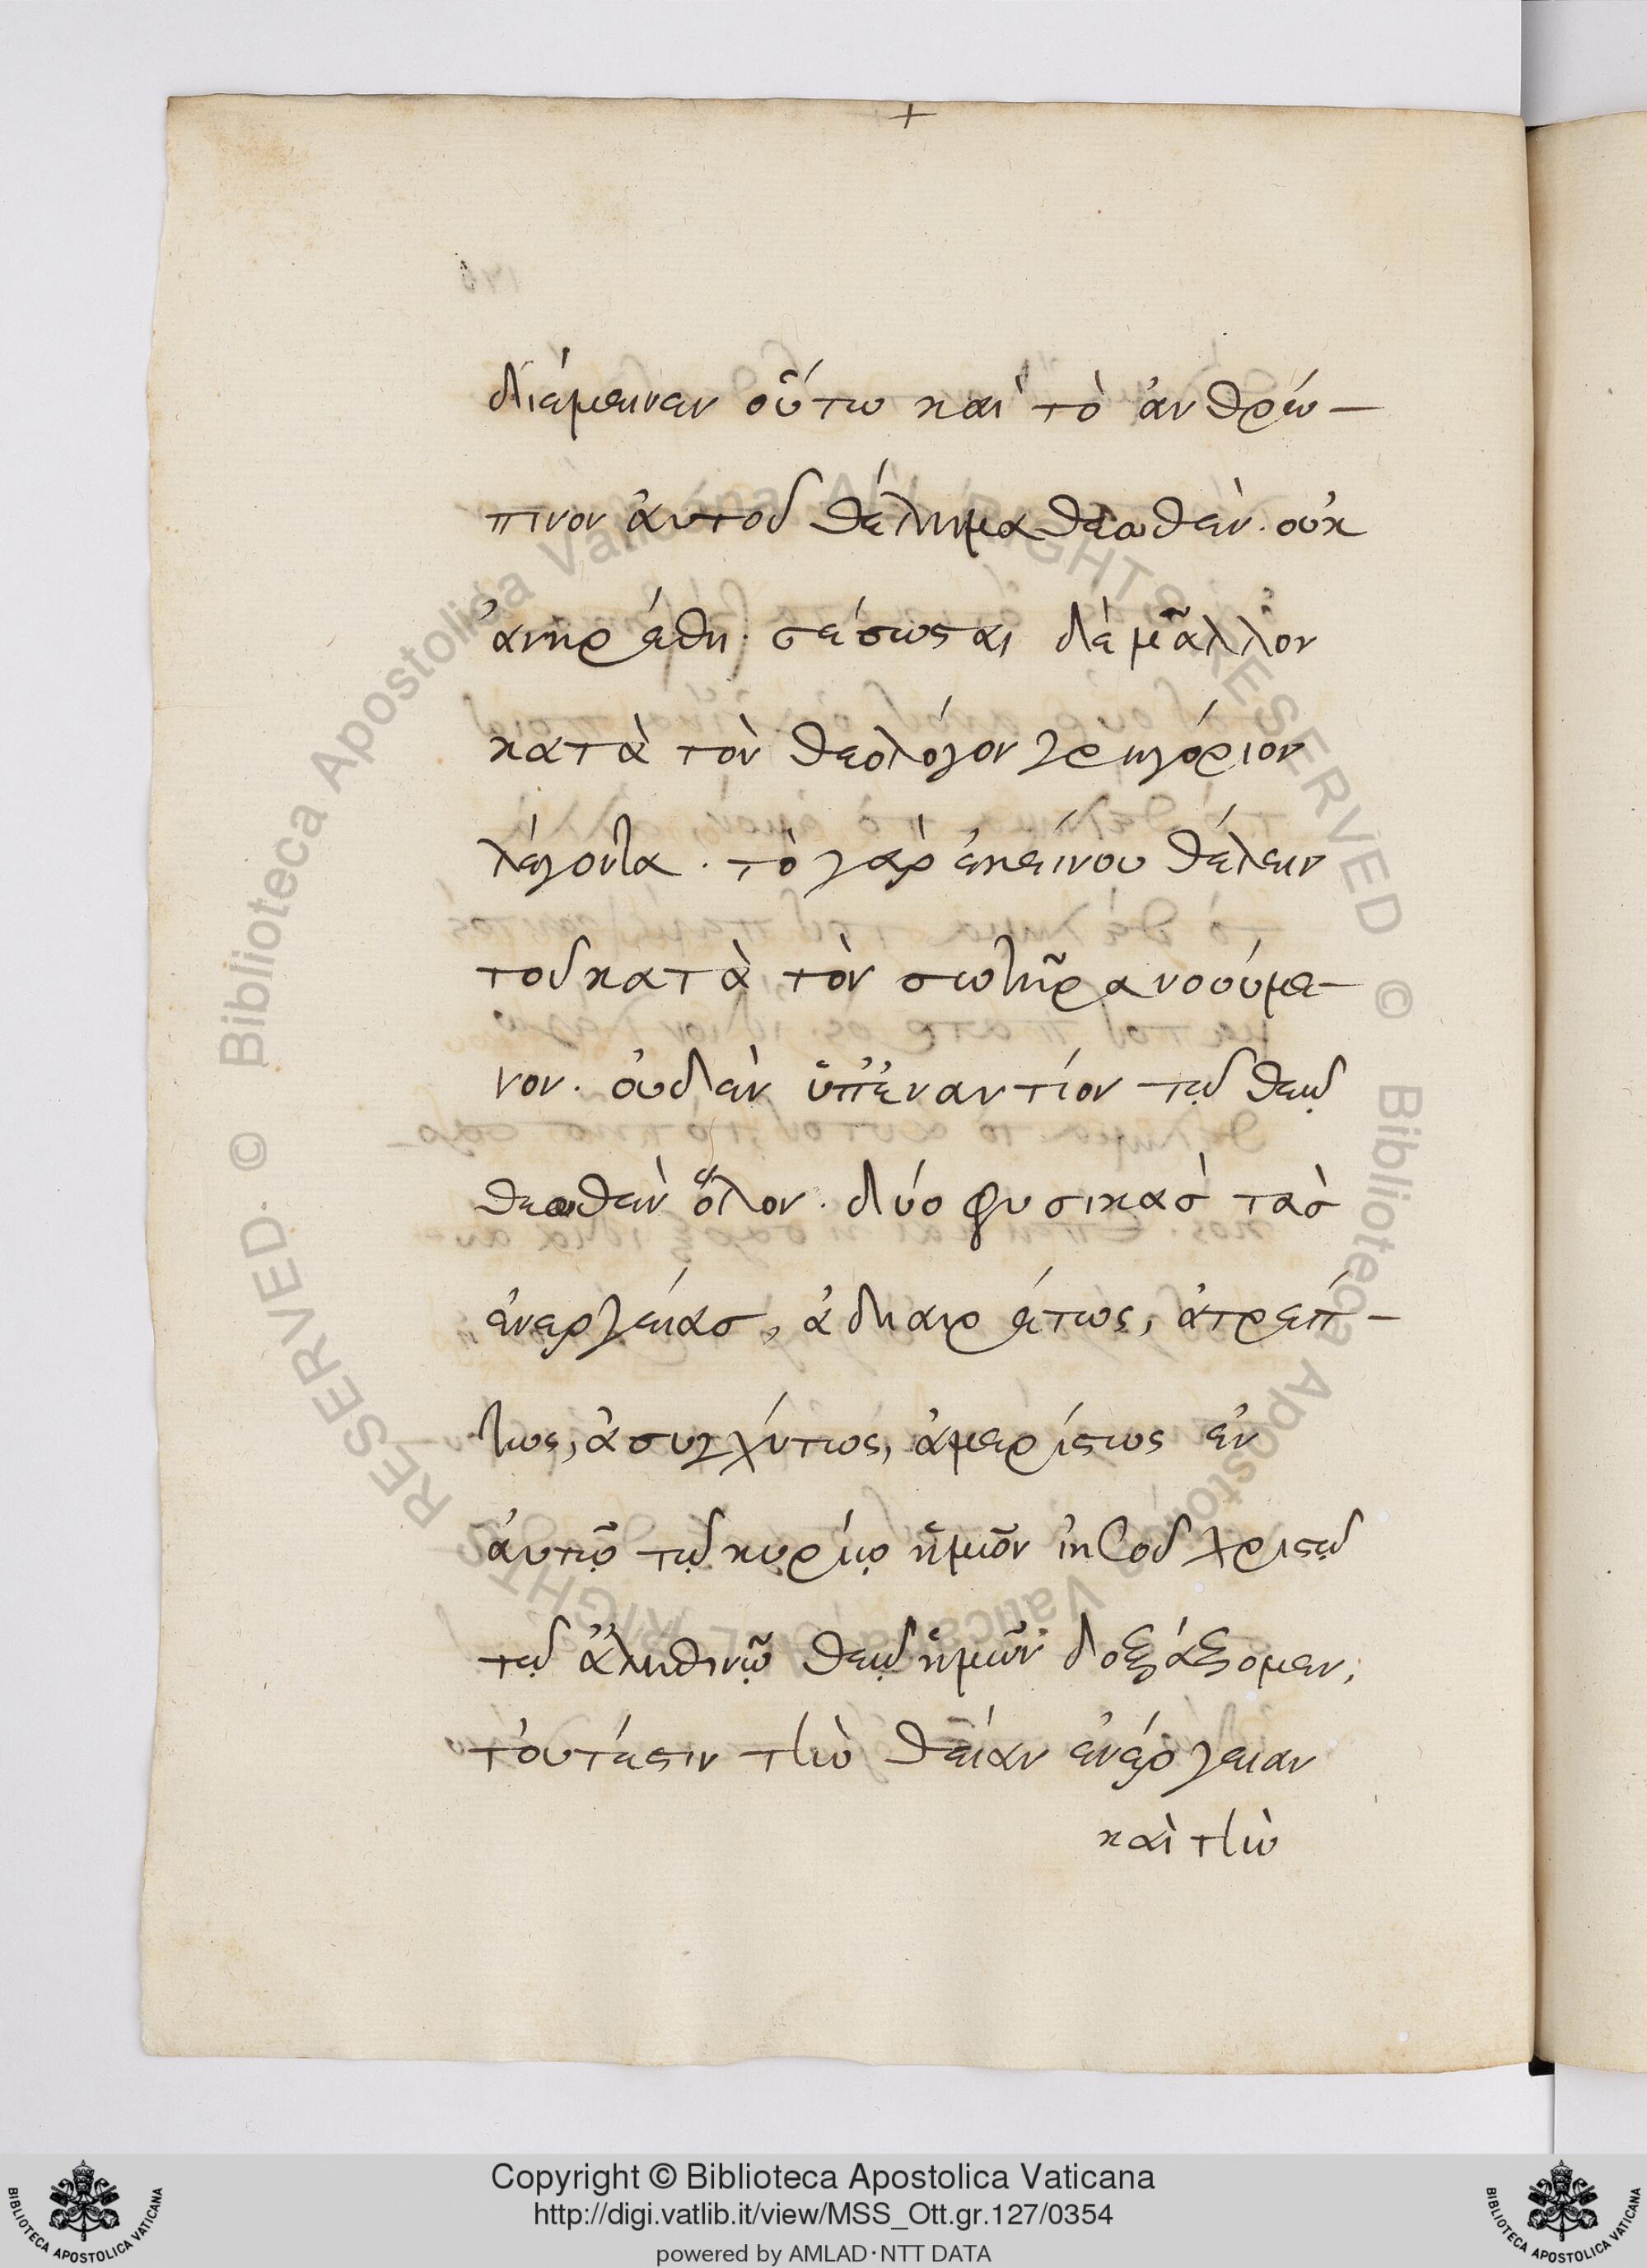 +
διέμεινεν οὕτω καὶ τὸ ἀνθρώ-
πινον ἀυτοῦ θέλημα θεωθὲν. οὐκ
ἀνηρέθη. σέσωσαι δὲ μᾶλλον
κατὰ τὸν θεολόγον γρηγόριον
λέγοντα. τὸ γὰρ ἐκείνου θέλειν
τοῦ κατὰ τὸν σωτῆρα νοούμε-
νον. ὀυδὲν ὑπἐναντίον τῷ θεῷ
θεωθὲν ὅλον. δύο φυσικὰσ τὰσ
ἐνεργείασ, ἀδιαιρέτως, ἀτρέπ-
τως, ἀσυγχύτως, ἀμερίστως ἐν
ἀυτῷ τῷ κυρίῳ ἡμῶν ἰησοῦ χριστῷ
τῷ ἀληθινῷ θεῷ ἡμῶν δοξάξομεν,
τὀυτέστιν τὴν θείαν ἐνέργειαν
καὶ τὴν
Copyright © Biblioteca Apostolica Vaticana
http://digi.vatlib.it/view/MSS_Ott.gr.127/0354
powered by AMLAD·NTT DATA
BIBLIOTECA APOSTOLICA VATICANA
BIBLIOTECA APOSTOLICA VATICANA
© Biblioteca Apostolica Vaticana ALL RIGHTS RESERVED
© Biblioteca Apostolica Vaticana ALL RIGHTS RESERVED.